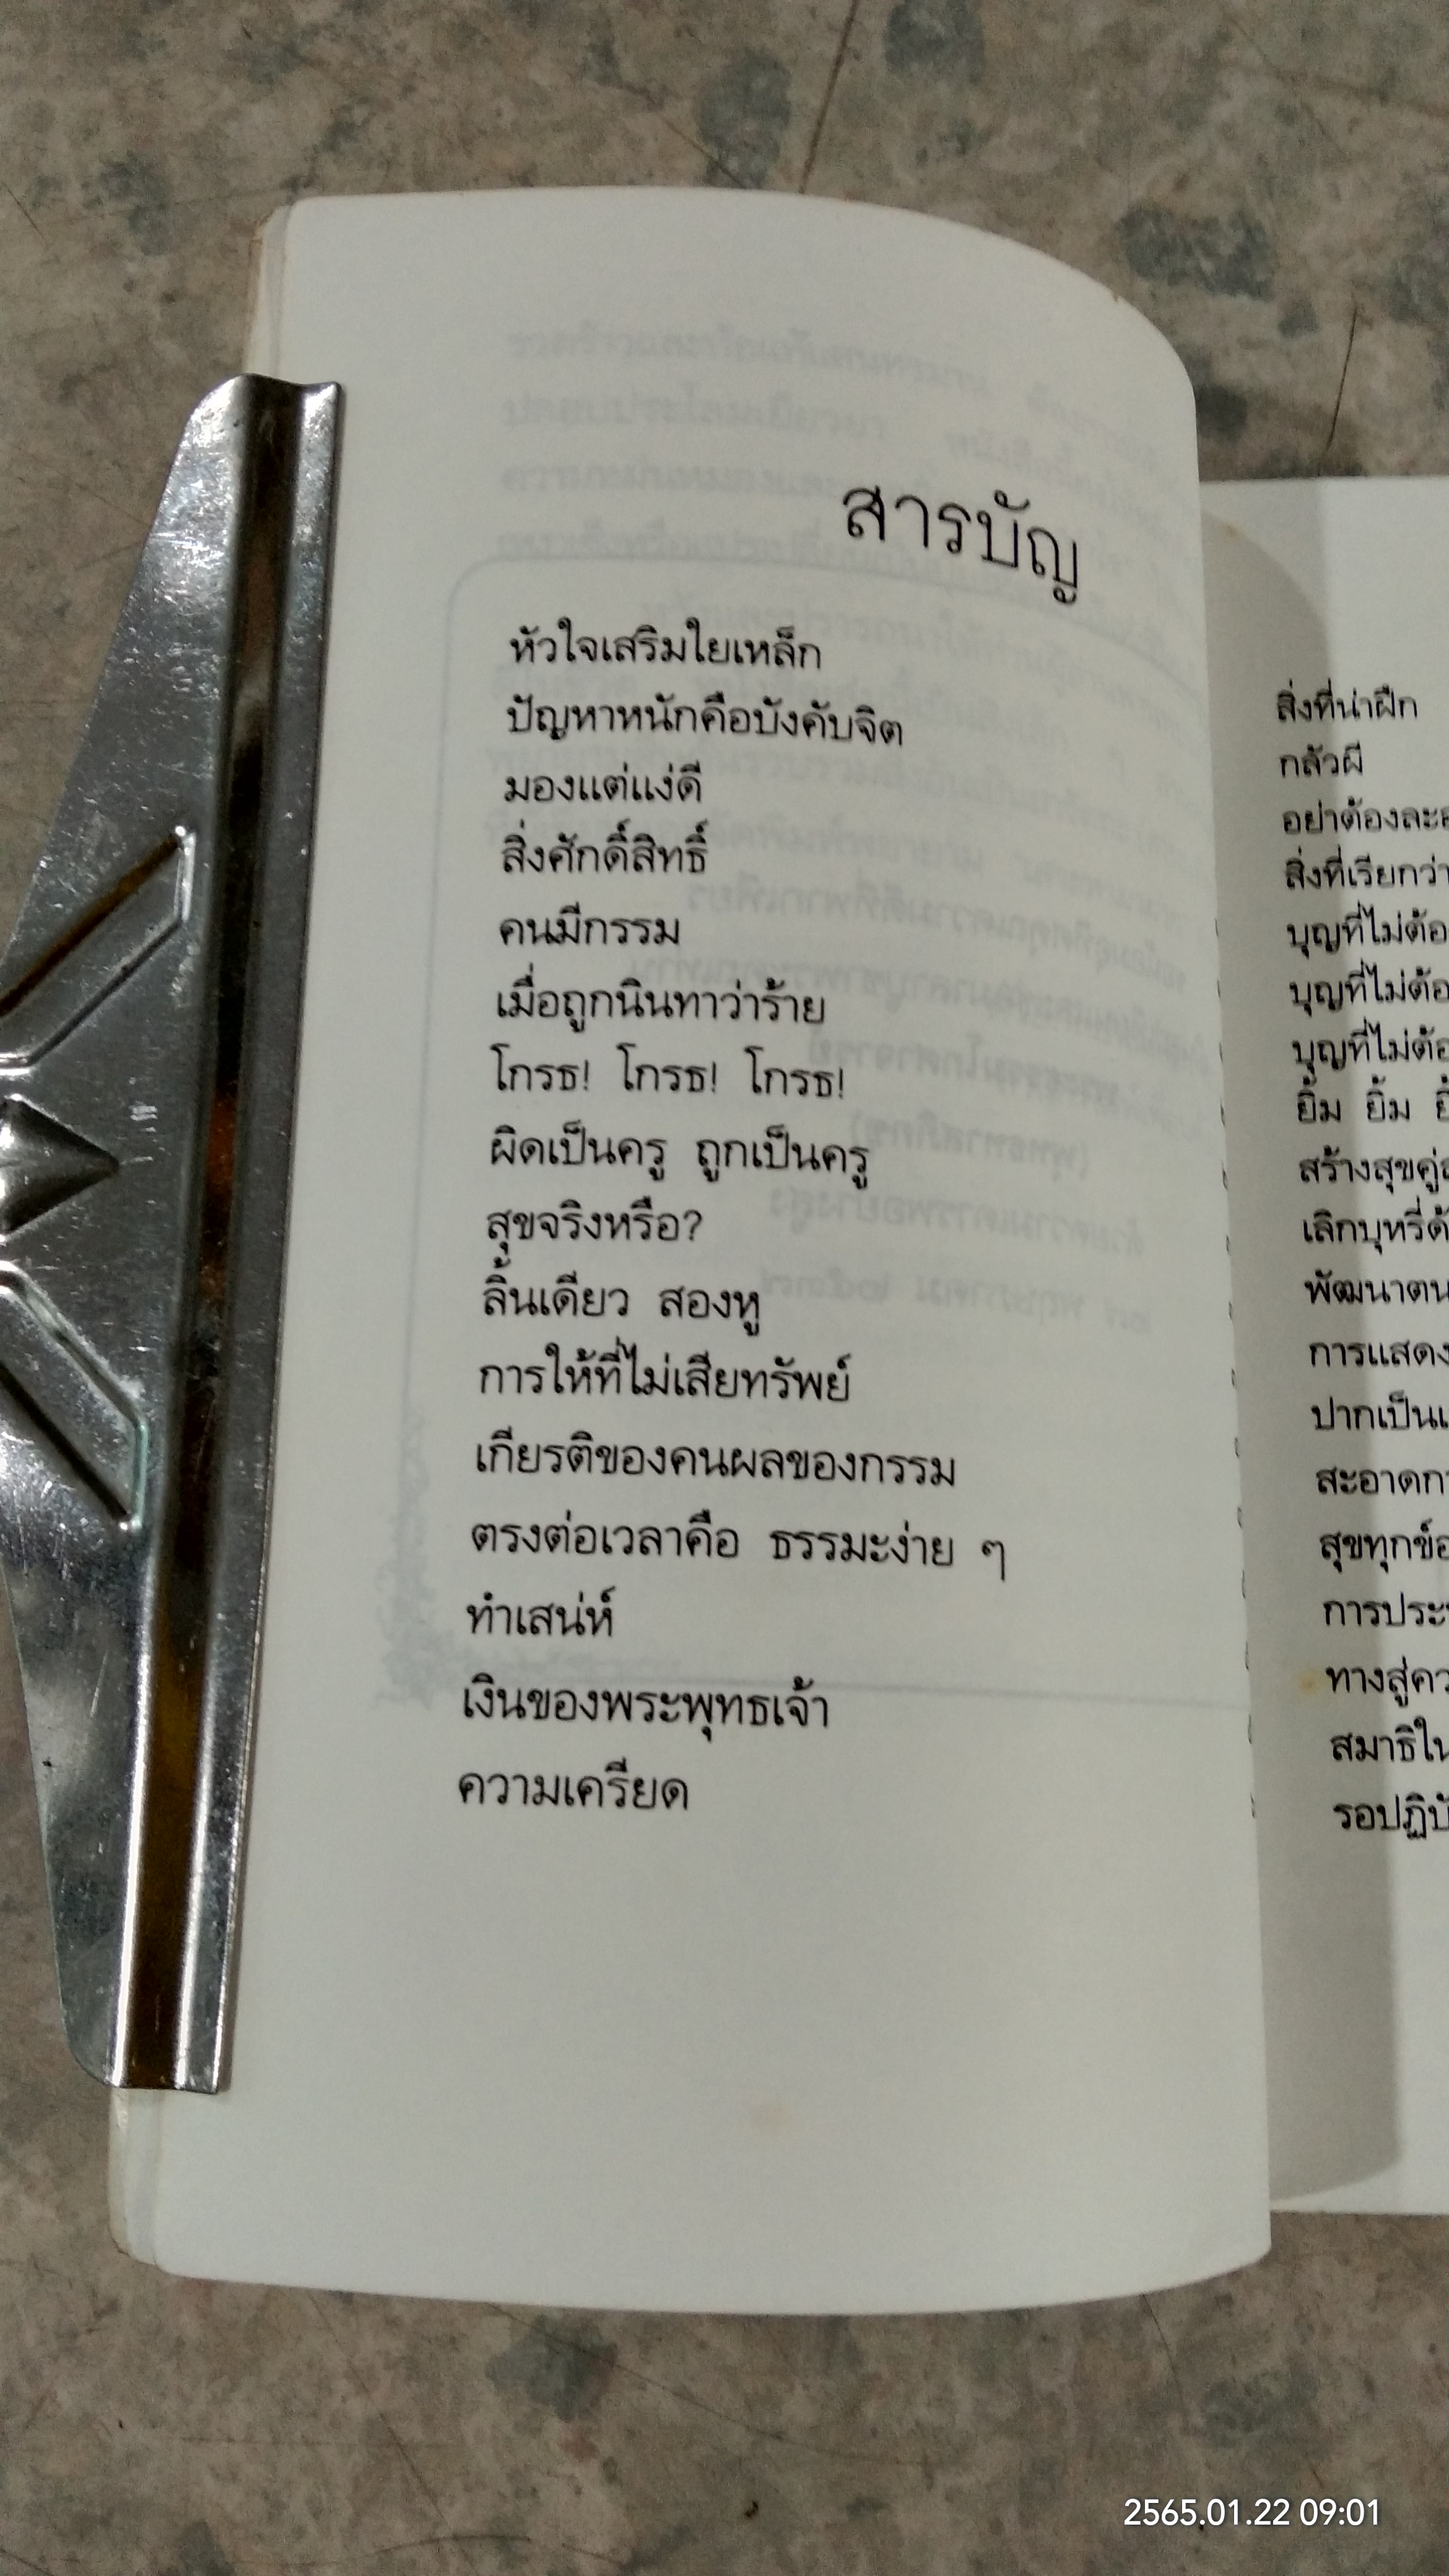 สารบัญ
หัวใจเสริมใยเหล็ก
ปัญหาหนักคือบังคับจิต
มองแต่แง่ดี
สิ่งศักดิ์สิทธิ์
คนมีกรรม
เมื่อถูกนินทาว่าร้าย
โกรธ! โกรธ! โกรธ!
ผิดเป็นครู ถูกเป็นครู
สุขจริงหรือ?
ลิ้นเดียว สองหู
การให้ที่ไม่เสียทรัพย์
เกียรติของคนผลของกรรม
ตรงต่อเวลาคือ ธรรมะง่าย ๆ
ทำเสน่ห์
เงินของพระพุทธเจ้า
ความเครียด
สิ่งที่น่าฝึก
กลัวผี
อย่าต้องละ
สิ่งที่เรียกว่า
บุญที่ไม่ต้อ
บุญที่ไม่ต้อ
บุญที่ไม่ต้อ
ยิ้ม ยิ้ม
สร้างสุขคู่
เลิกบุหรี่ด้
พัฒนาตน
การแสดง
ปากเป็น
สะอาดก
สุขทุกข์อ
การประ
ทางสู่คว
สมาธิใน
รอปฏิบั
2565.01.22 09:01